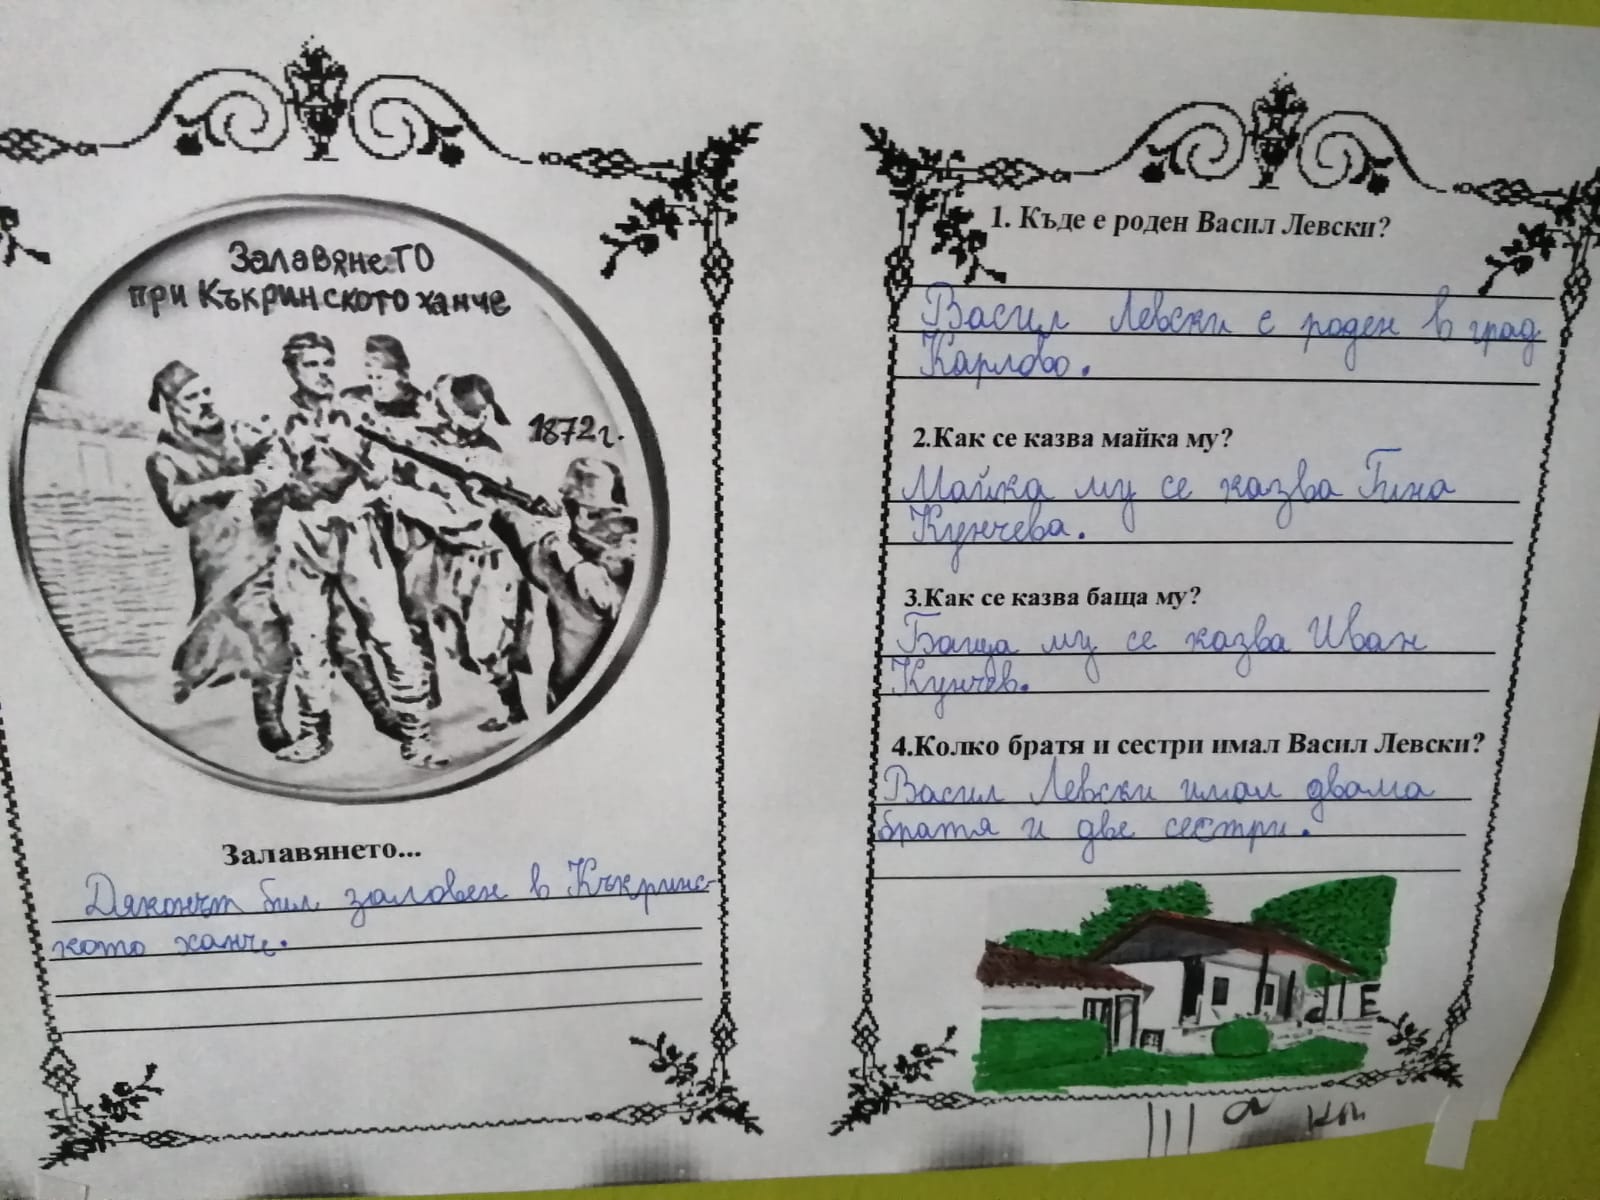 Залавянето
при Къкринското ханче
1872г.
Залавянето...
Дяконът бил заловен в Къкринс-
кото ханче.
1. Къде е роден Васил Левски?
Васил Левски е роден в град
Карлово.
2.Как се казва майка му?
Майка му се казва Гина
Кунчева.
3.Как се казва баща му?
Баща му се казва Иван
Кунчев.
4.Колко братя и сестри имал Васил Левски?
Васил Левски имал двама
братя и две сестри.
III а кл.